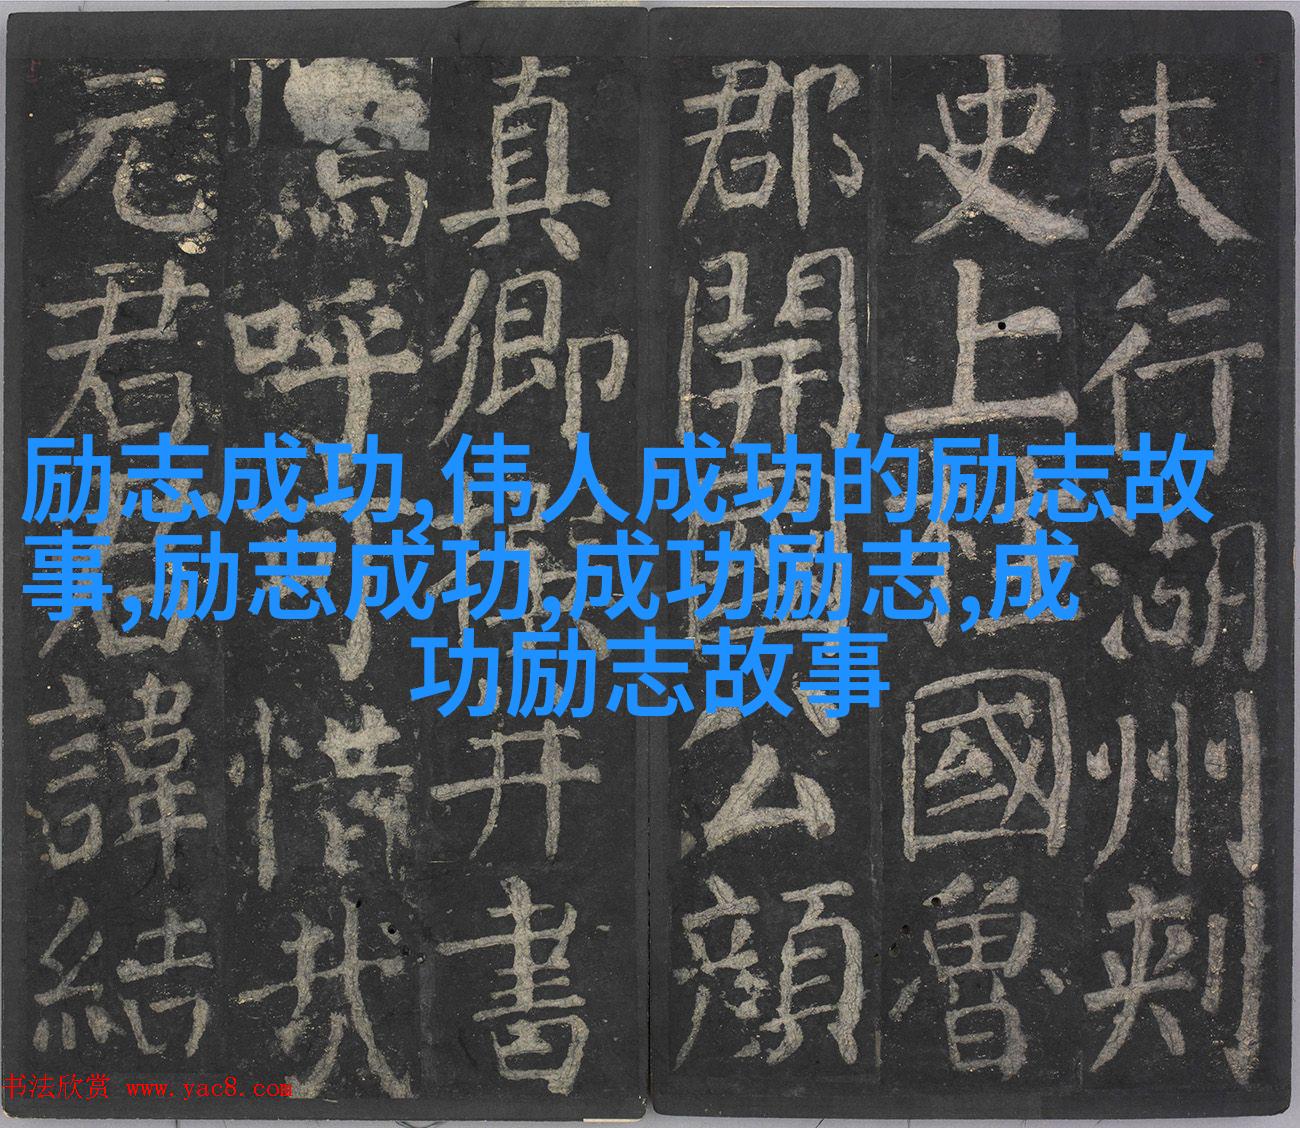 夫行湖州刺
史上柱國魯
郡開國公顏
真卿撰并書
嗚呼可惜哉
元君君諱結
励志成功,伟人成功的励志故
事,励志成功,成功励志,成
功励志故事
书法欣赏 www.yac8.com